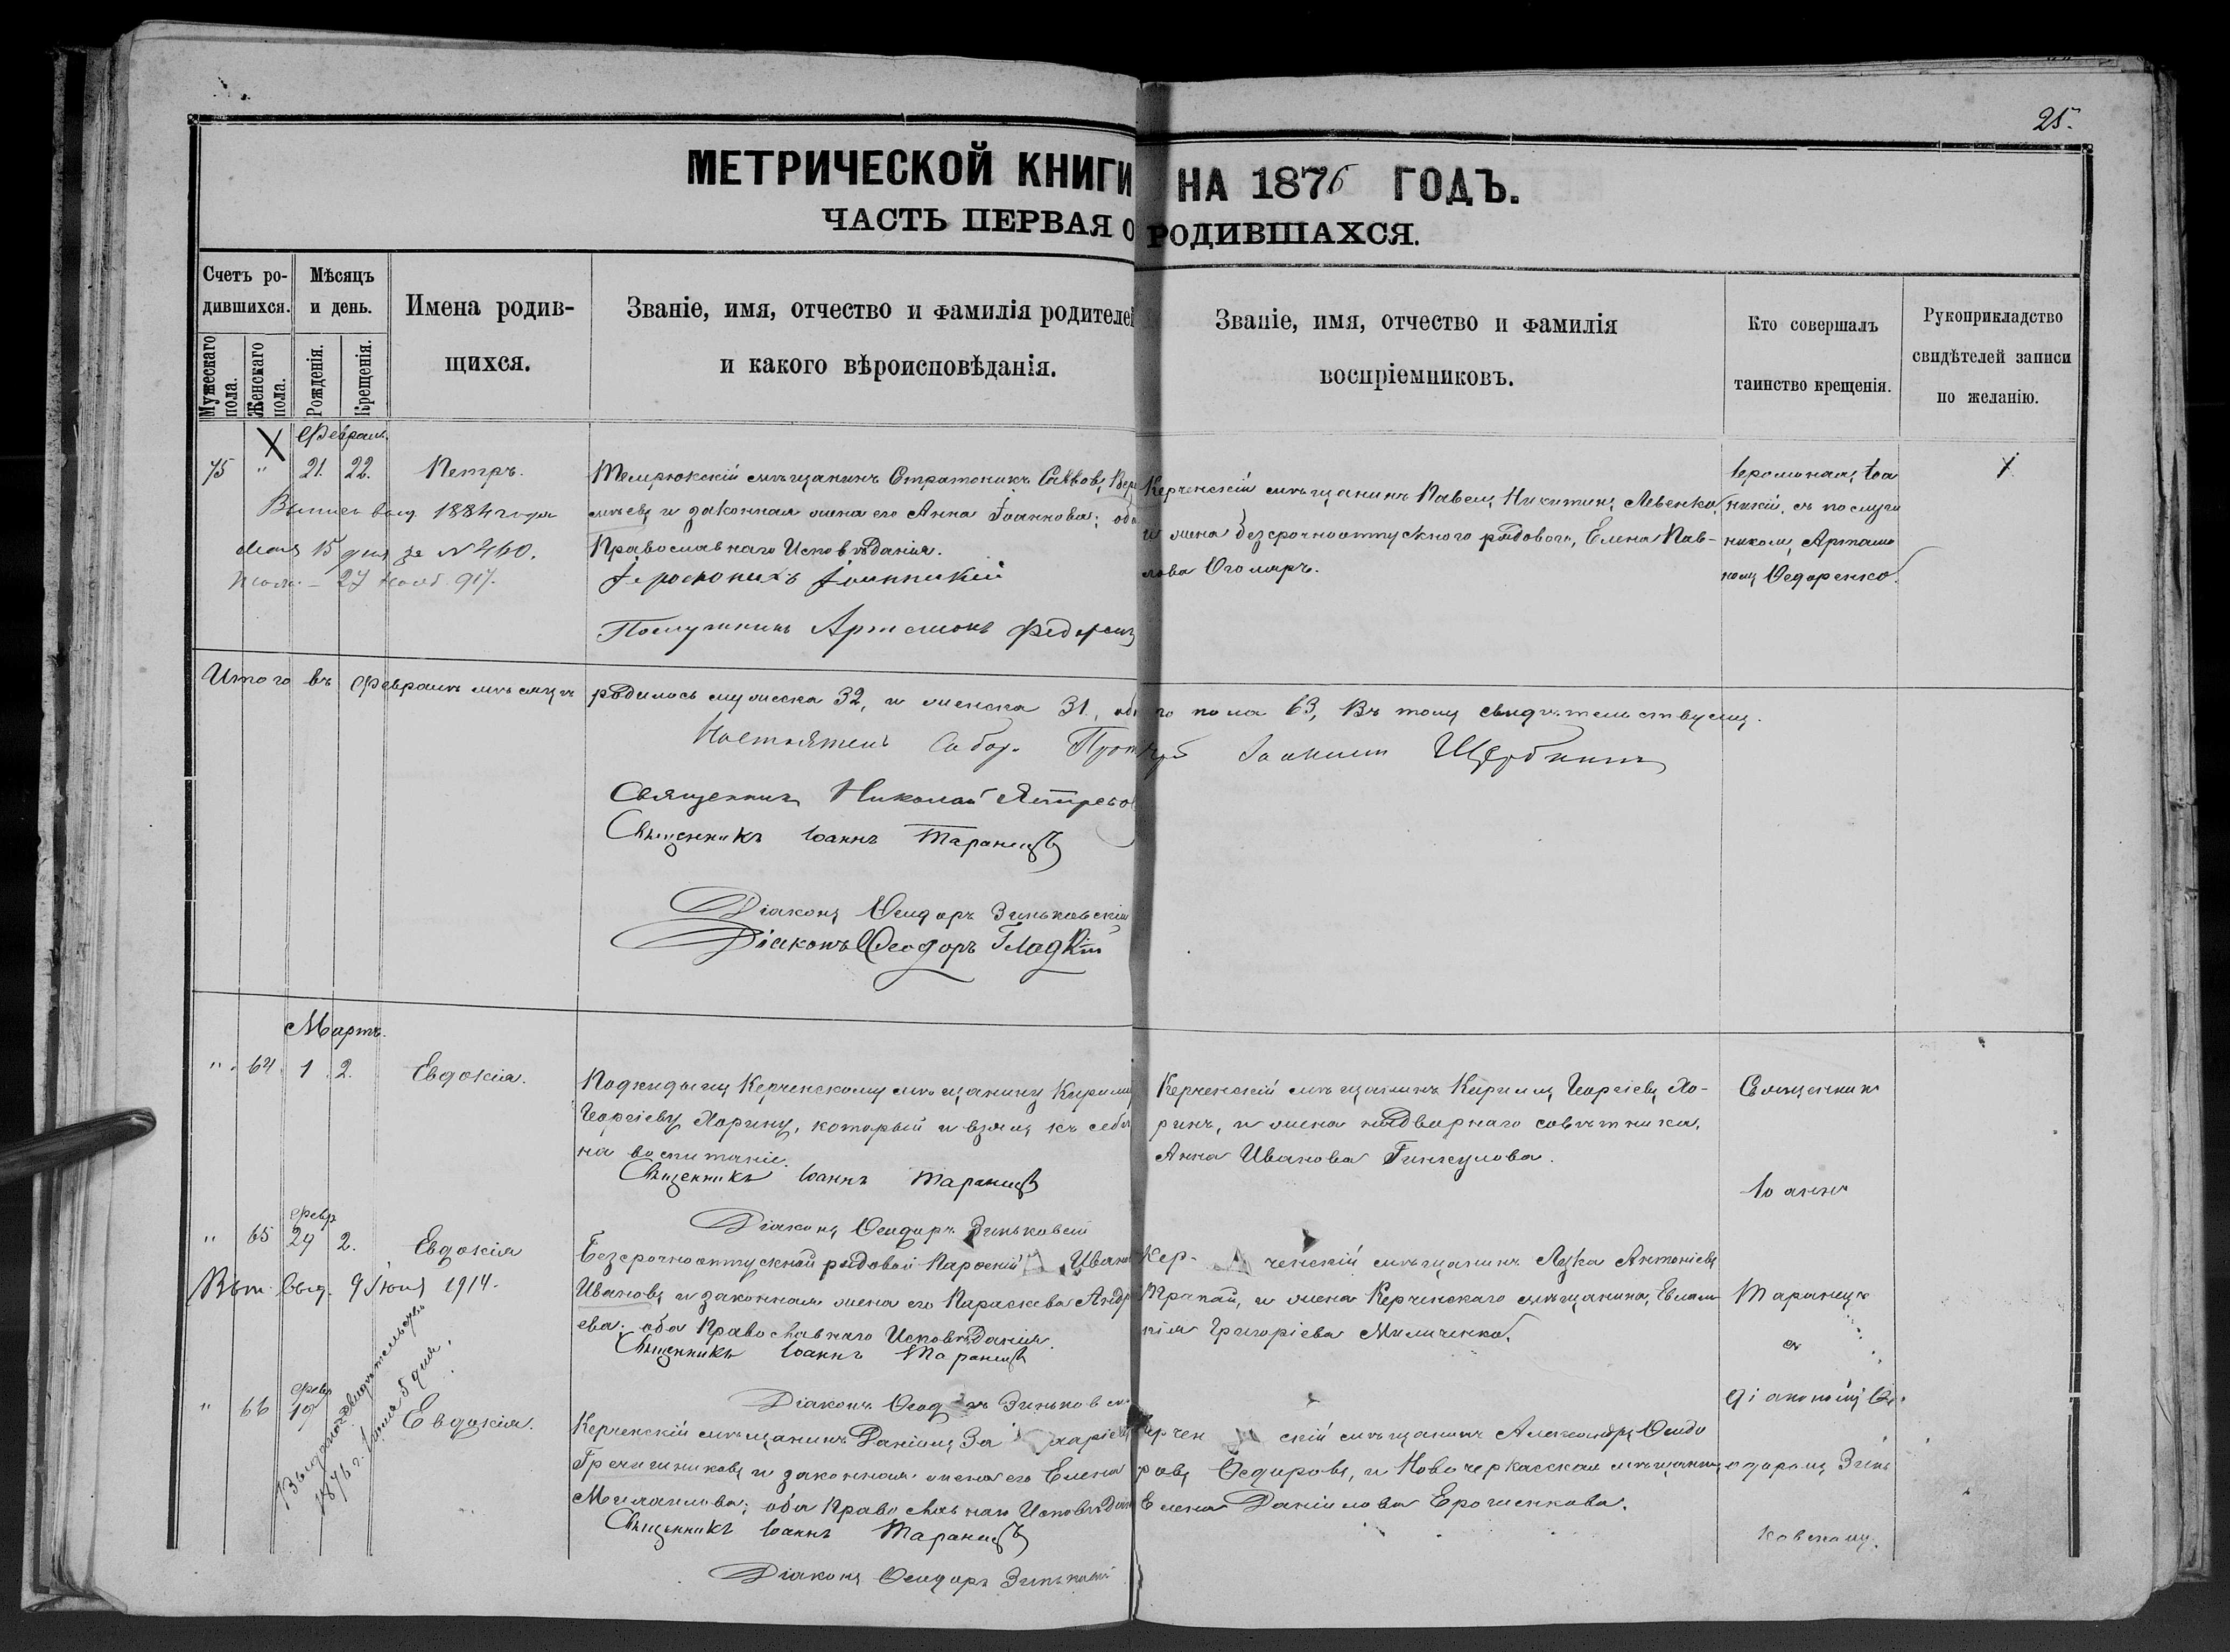 25.
МЕТРИЧЕСКОЙ КНИГИ НА 1876 ГОДЪ.
ЧАСТЬ ПЕРВАЯ О РОДИВШАХСЯ.
Счетъ ро-
дившихся.
Мужескаго пола.
Женскаго пола.
Мѣсяцъ
и день.
Рожденія.
Крещенія.
Имена родив-
щихся.
Званіе, имя, отчество и фамилія родителей
и какого вѣроисповѣданія.
Званіе, имя, отчество и фамилія
воспріемниковъ.
Кто совершалъ
таинство крещенія.
Рукоприкладство
свидѣтелей записи
по желанію.
Февраль.
75 " 21. 22. Петръ.
Темрюкскій мѣщанинъ Стратоникъ Саввовъ
и законная жена его Анна Іоаннова; оба
Православнаго Исповѣданія.
Іеромонахъ Іоанникій
Послушникъ Артемонъ
1884 года
15 дня за № 460.
27 нояб. 917.
Керченскій мѣщанинъ Павелъ Никитинъ Левенко,
и жена безсрочноотпускного рядового, Елена Пав-
лова
Іеромонахъ Іоа
никій, съ послуш
никомъ Артемо
номъ Ѳедоренко.
Итого въ Февралѣ мѣсяцѣ родилось мужеска 32, и женска 31, обоего пола 63, Въ томъ свидѣтельствуемъ.
Настоятель Собор. Іоакимъ Щербининъ
Священникъ Николай
Священникъ Іоаннъ Таранецъ
Діаконъ Ѳеодоръ Зиньковскій
Діаконъ Ѳеодоръ Гладкій
Мартъ.
" 64. 1. 2. Евдокія.
Подкидышъ Керченскому мѣщанину Кирилу
Георгіеву Хорину, который и взялъ къ себѣ
на воспитаніе.
Священникъ Іоаннъ Таранецъ
Діаконъ Ѳеодоръ Зиньковскій
Керченскій мѣщанинъ Кириллъ Георгіевъ Хо-
ринъ, и жена надворнаго совѣтника,
Анна Иванова
Священник
Іоанн
" 65 Февр 29 2. Евдокія
Вып. выд. 9 Іюня 1914.
Безсрочноотпускной рядовой Иванъ
Ивановъ и законная жена его Параскева Андре
ева; оба Православнаго Исповѣданія.
Священникъ Іоаннъ Таранецъ
Діаконъ Ѳеодоръ Зиньковскій
Керченскій мѣщанинъ Лука Антоніевъ
и жена Керченскаго мѣщанина, Евлам
пія Григоріева
Таранецъ
съ
" 66 Февр 19 Евдокія.
Выдано свидѣтельство
1876 г. Іюня 5 дня.
Керченскій мѣщанинъ Даніилъ Захаріевъ
Гречишниковъ и законная жена его Елена
Михаилова; оба Православнаго Исповѣдан
Священникъ Іоаннъ Таранецъ
Діаконъ Ѳеодоръ Зиньковскій
Керченскій мѣщанинъ Александръ Ѳеодо
ровъ Ѳедоровъ, и Новочеркасская мѣщанка
Елена Даніилова Ерошенкова.
діакономъ Ѳе
одоромъ Зинь
ковскимъ.